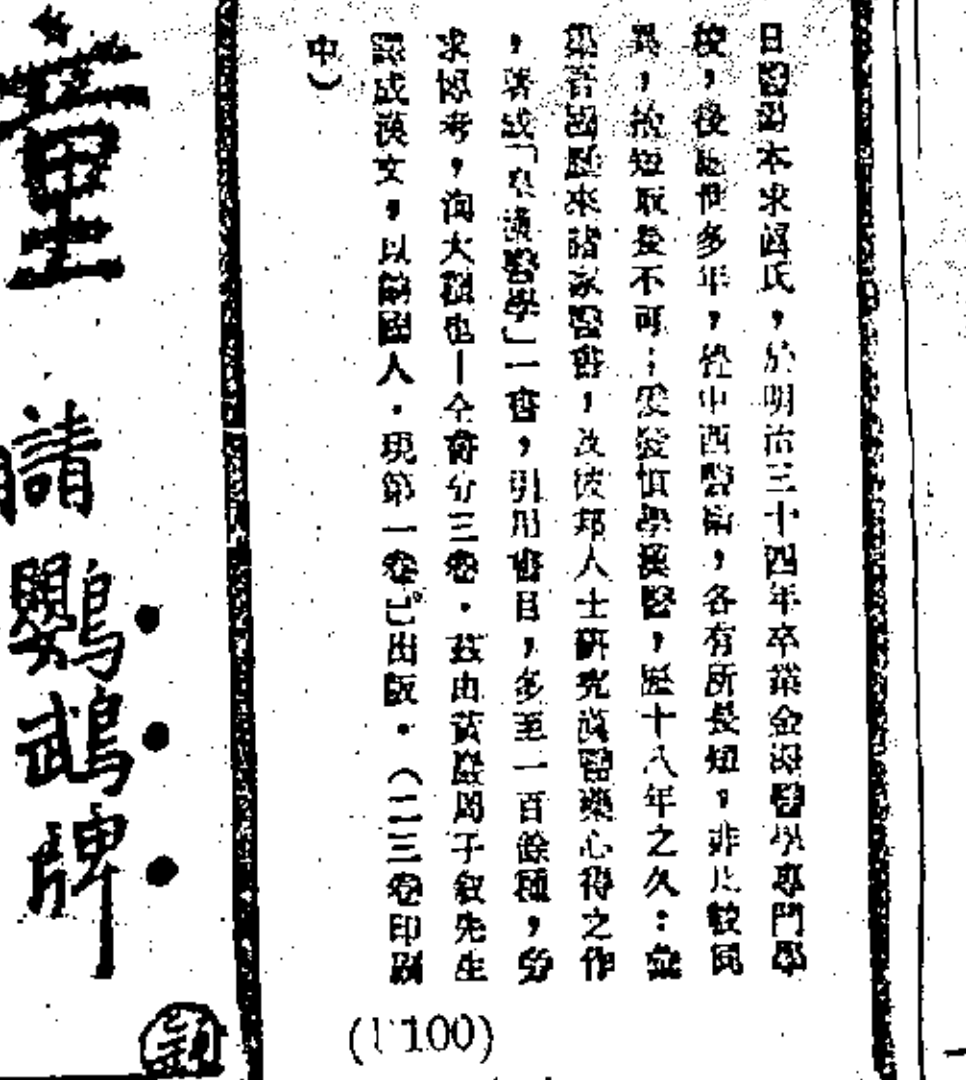 日醫湯本求眞氏，於明治三十四年卒業金澤醫學專門學
校，後臨世多年，覺中西醫術，各有所長短，非比較同
異，捨短取長不可；爰發憤學漢醫，歷十八年之久：彙
集吾國歷來諸家醫書，及彼邦人士硏究漢醫藥心得之作
，著成「皇漢醫學」一書，引用書目，多至一百餘種，旁
求博考，洵大觀也—全書分三卷．茲由黃巖周子敘先生
譯成漢文，以餉國人．現第一卷已出版．（二三卷印刷
中）
(1100)
童
請
鸚鵡牌